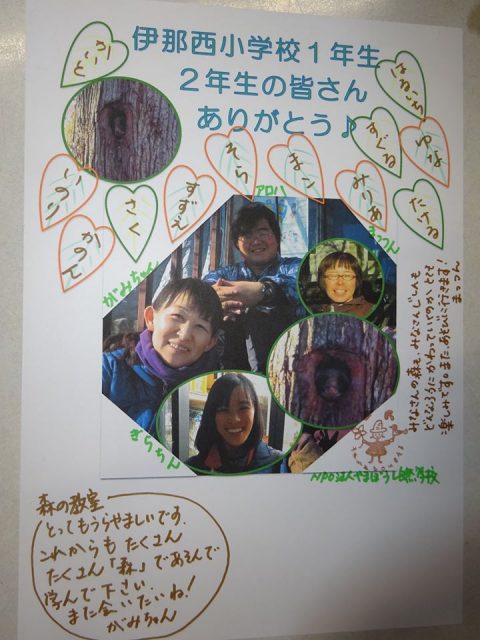 伊那西小学校１年生
２年生の皆さん
ありがとう♪
はるいち
ゆな
すぐる
たける
みりあ
まこ
そら
すずえ
さく
アロハ
まっつん
がみちゃん
きらちん
みなさんの森も、みなさんじしんも
どんなふうにかわっていくのかとても
楽しみです。またあそびに行きます！
まっつん
NPO法人やまぼうし自然学校
森の教室
とってもうらやましいです。
これからも たくさん
たくさん「森」であそんで
学んで下さい。
また会いたいね！
がみちゃん